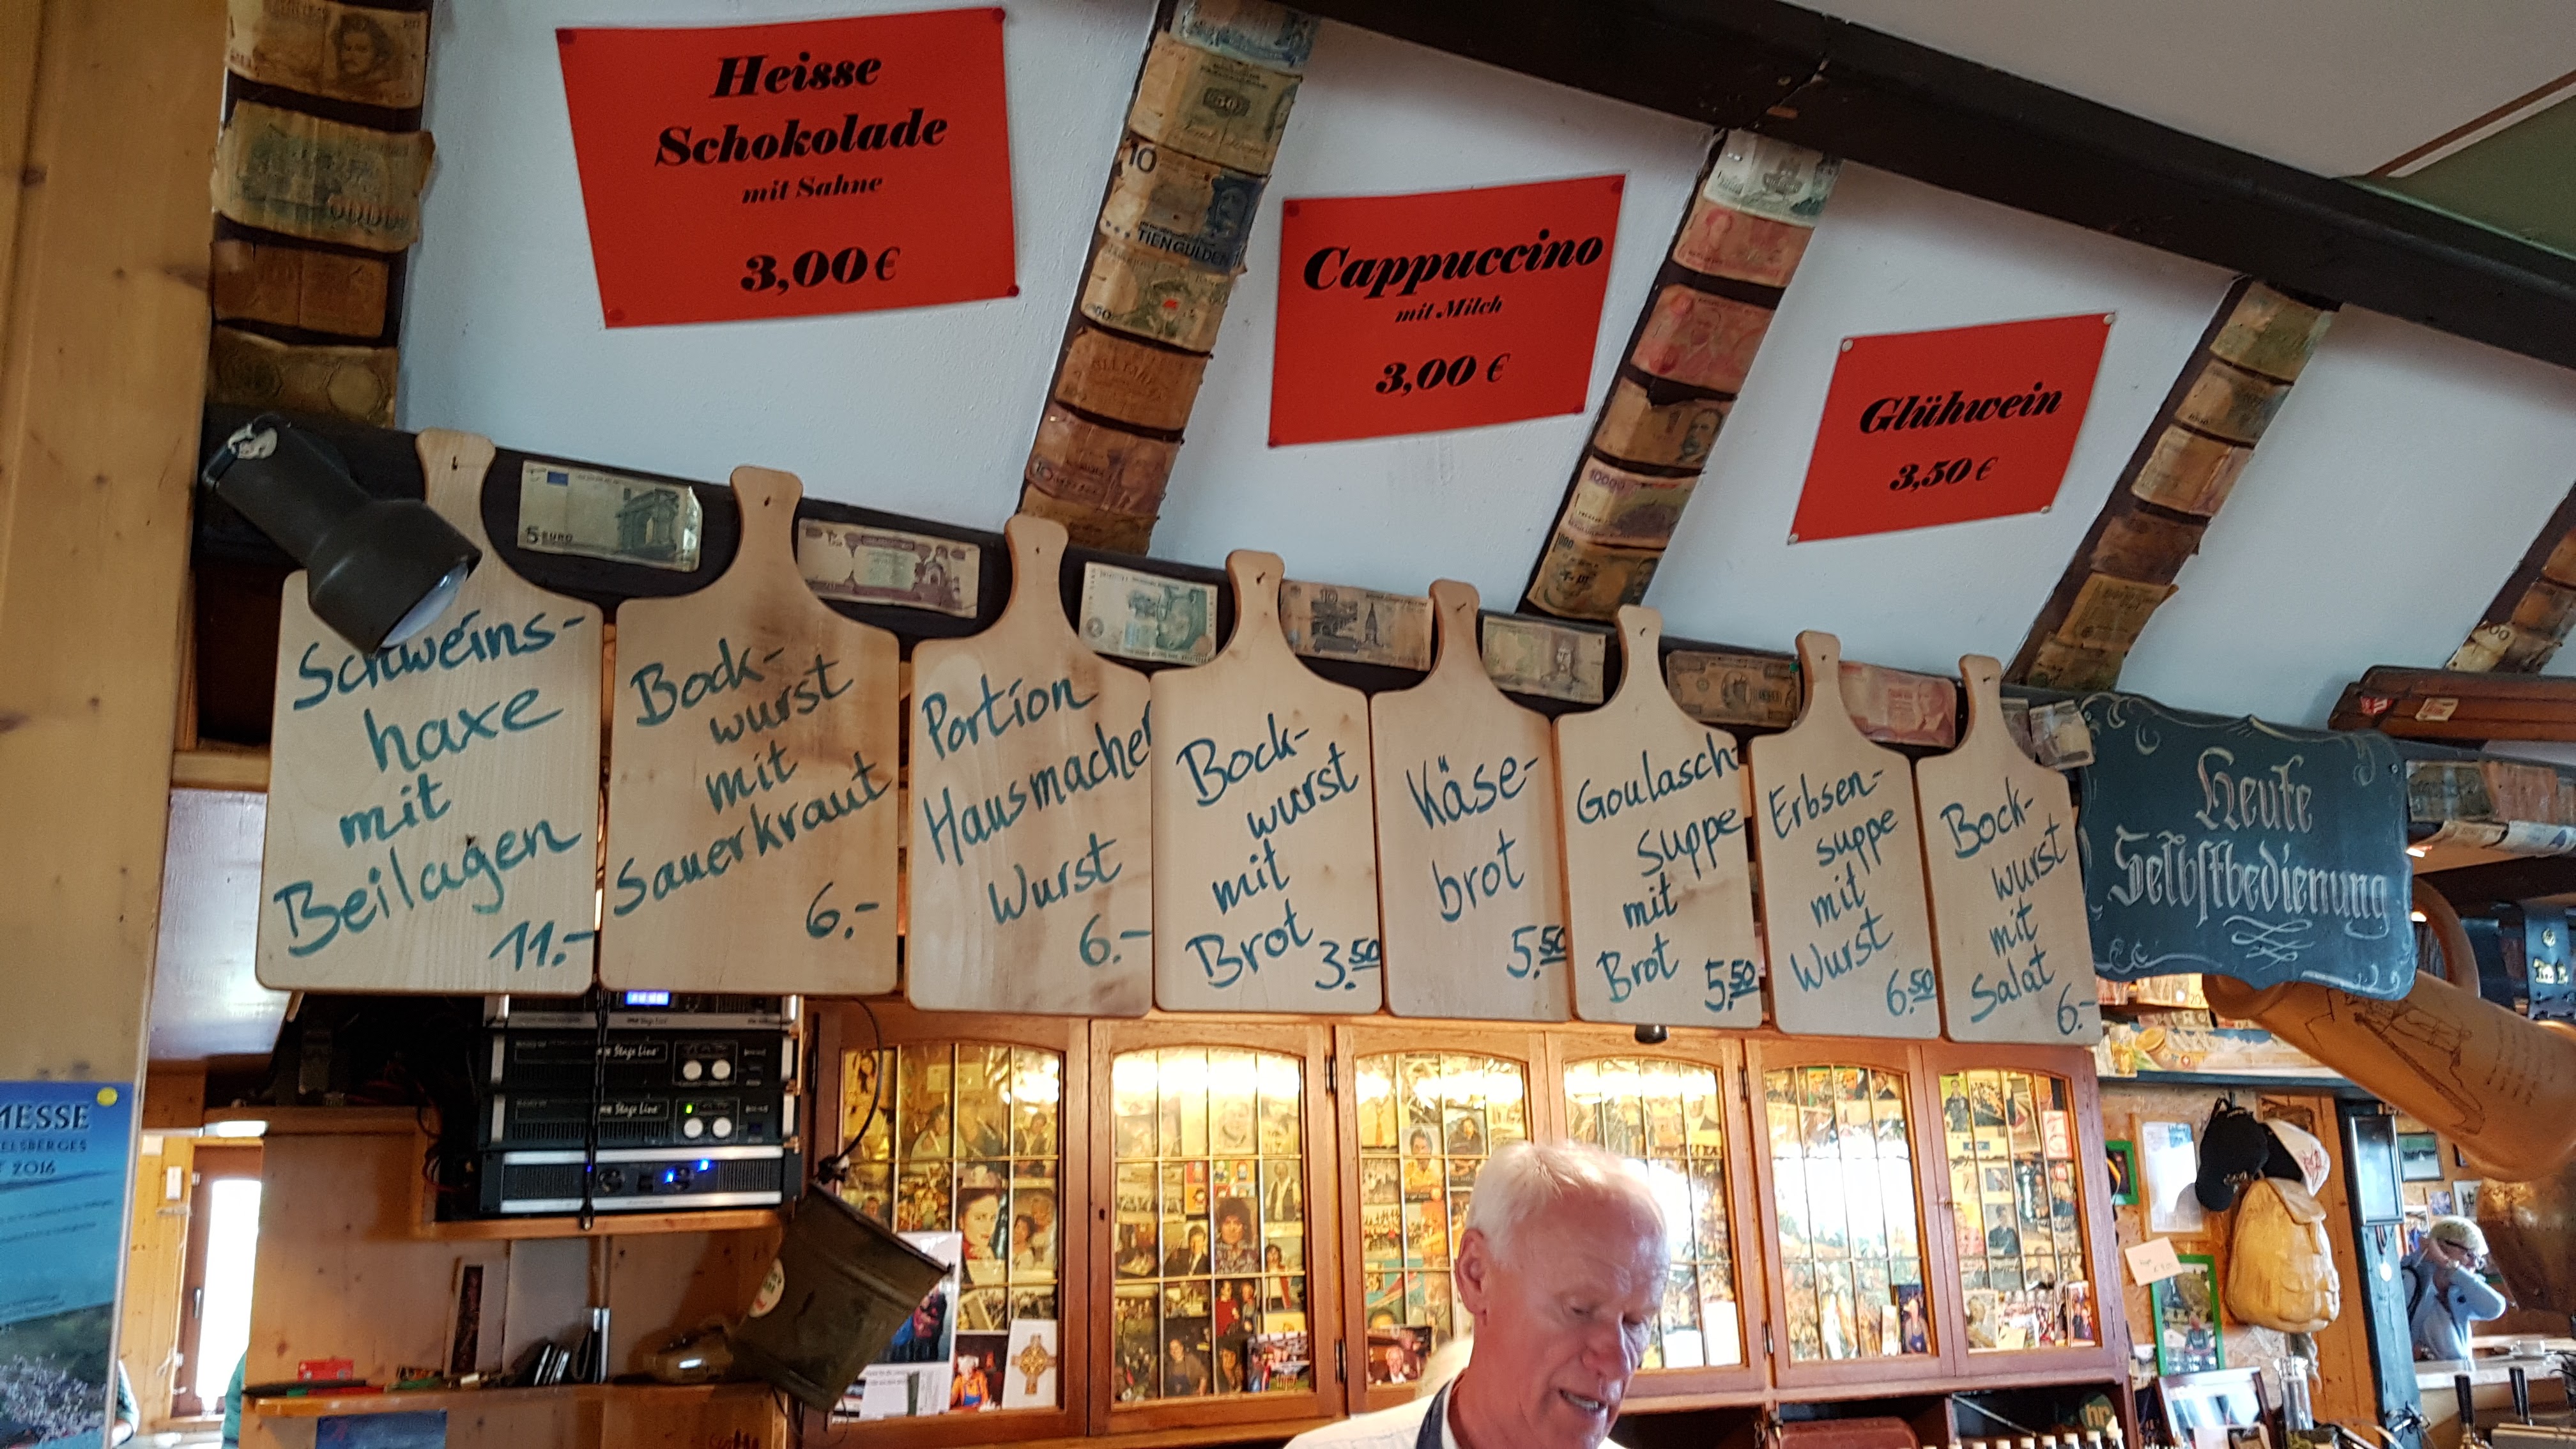 Heisse
Schokolade
mit Sahne
3,00 €
Cappuccino
mit Milch
3,00 €
Glühwein
3,50 €
10
TIEN GULDEN
10000
5 EURO
10
Schweins-
haxe
mit
Beilagen
11.-
Bock-
wurst
mit
Sauerkraut
6.-
Portion
Hausmacher
Wurst
6.-
Bock-
wurst
mit
Brot
3.50
Käse-
brot
5.50
Goulasch-
suppe
mit
Brot
5.50
Erbsen-
suppe
mit
Wurst
6.50
Bock-
wurst
mit
Salat
6.-
Heute
Selbstbedienung
Stage Line
Stage Line
MESSE
ELSBERGES
2016
hr